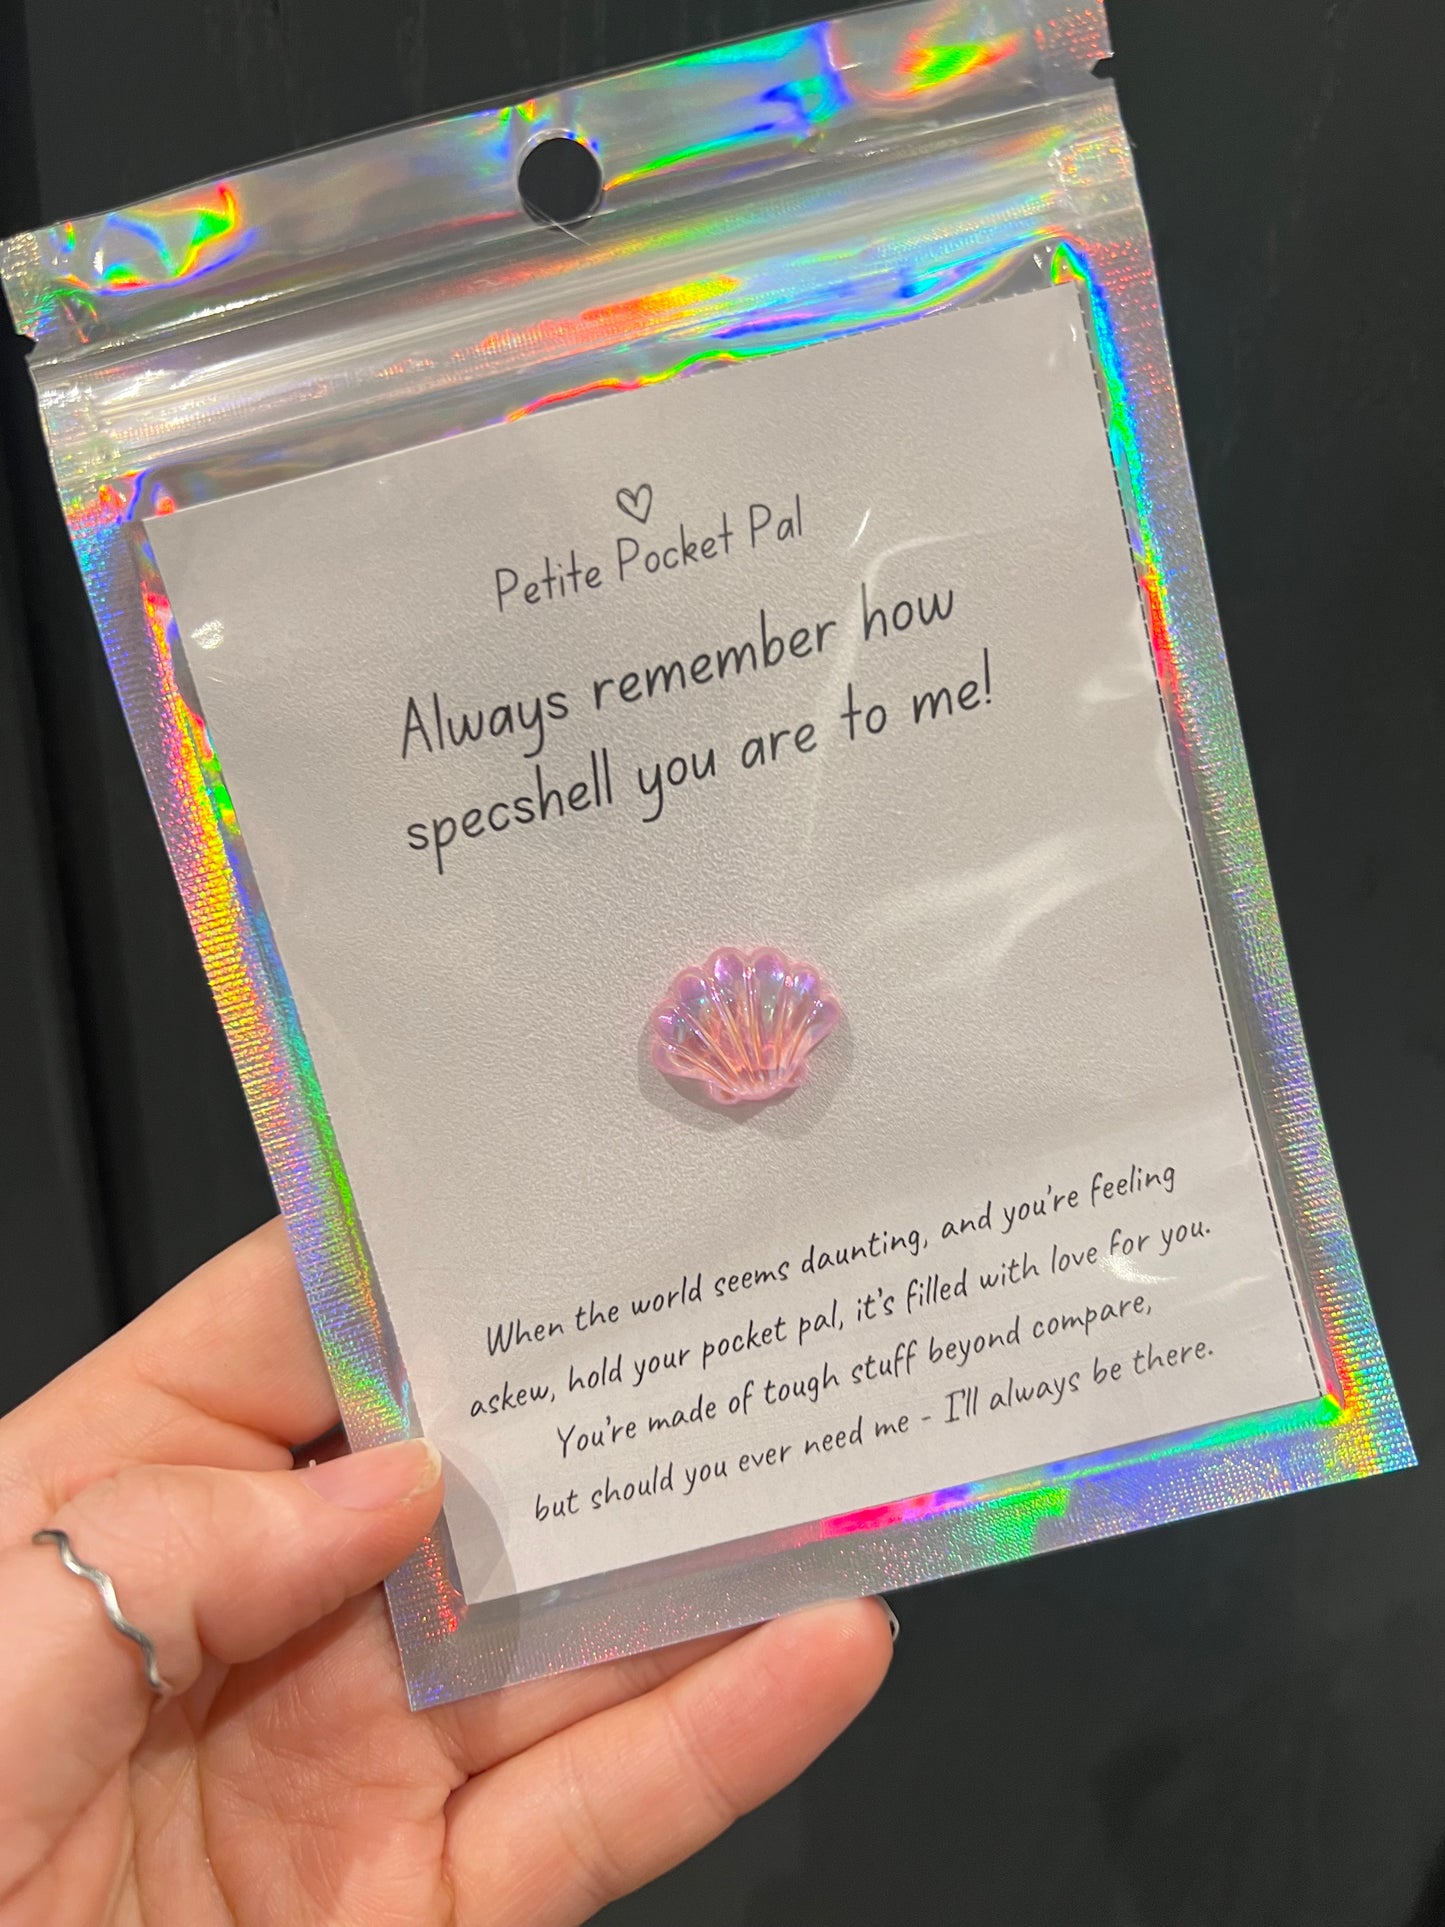 Petite Pocket Pal
Always remember how
specshell you are to me!
When the world seems daunting, and you're feeling
askew, hold your pocket pal, it's filled with love for you.
You're made of tough stuff beyond compare,
but should you ever need me - I'll always be there.